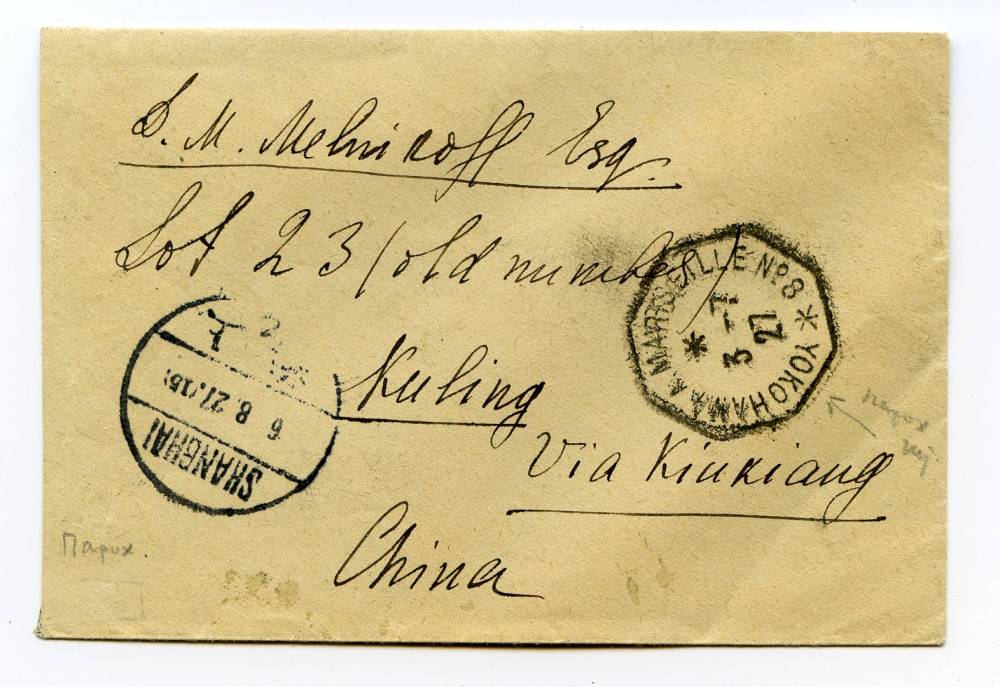 D. M. Melnikoff Esq.
Lot 23 (old number)
Kuling
Via Kiukiang
China
YOKOHAMA A MARSEILLE Nº8
3 -7
27
SHANGHAI
6 8 27 (15)
Парох.